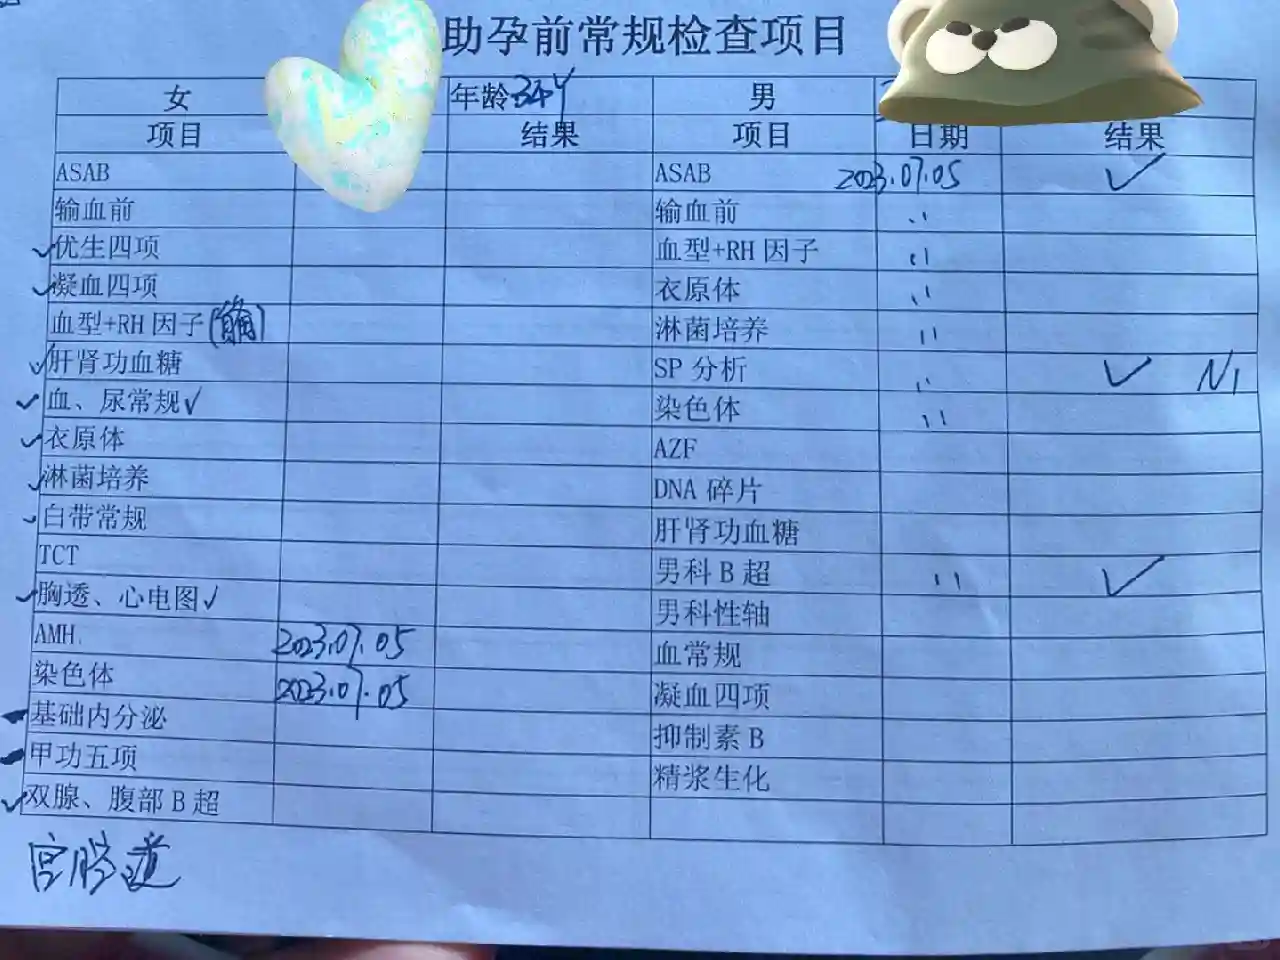 助孕前常规检查项目
女 年龄34Y 男
项目 结果 项目 日期 结果
ASAB ASAB 2023.07.05 ✓
输血前 输血前 〃
✓优生四项 血型+RH因子 〃
✓凝血四项 衣原体 〃
血型+RH因子 淋菌培养 〃
✓肝肾功血糖 SP分析 〃 ✓ N1
✓血、尿常规✓ 染色体 〃
✓衣原体 AZF
✓淋菌培养 DNA碎片
✓白带常规 肝肾功血糖
TCT 男科B超 〃 ✓
✓胸透、心电图✓ 男科性轴
AMH. 2023.07.05 血常规
染色体 2023.07.05 凝血四项
基础内分泌 抑制素B
甲功五项 精浆生化
✓双腺、腹部B超
宫腔镜